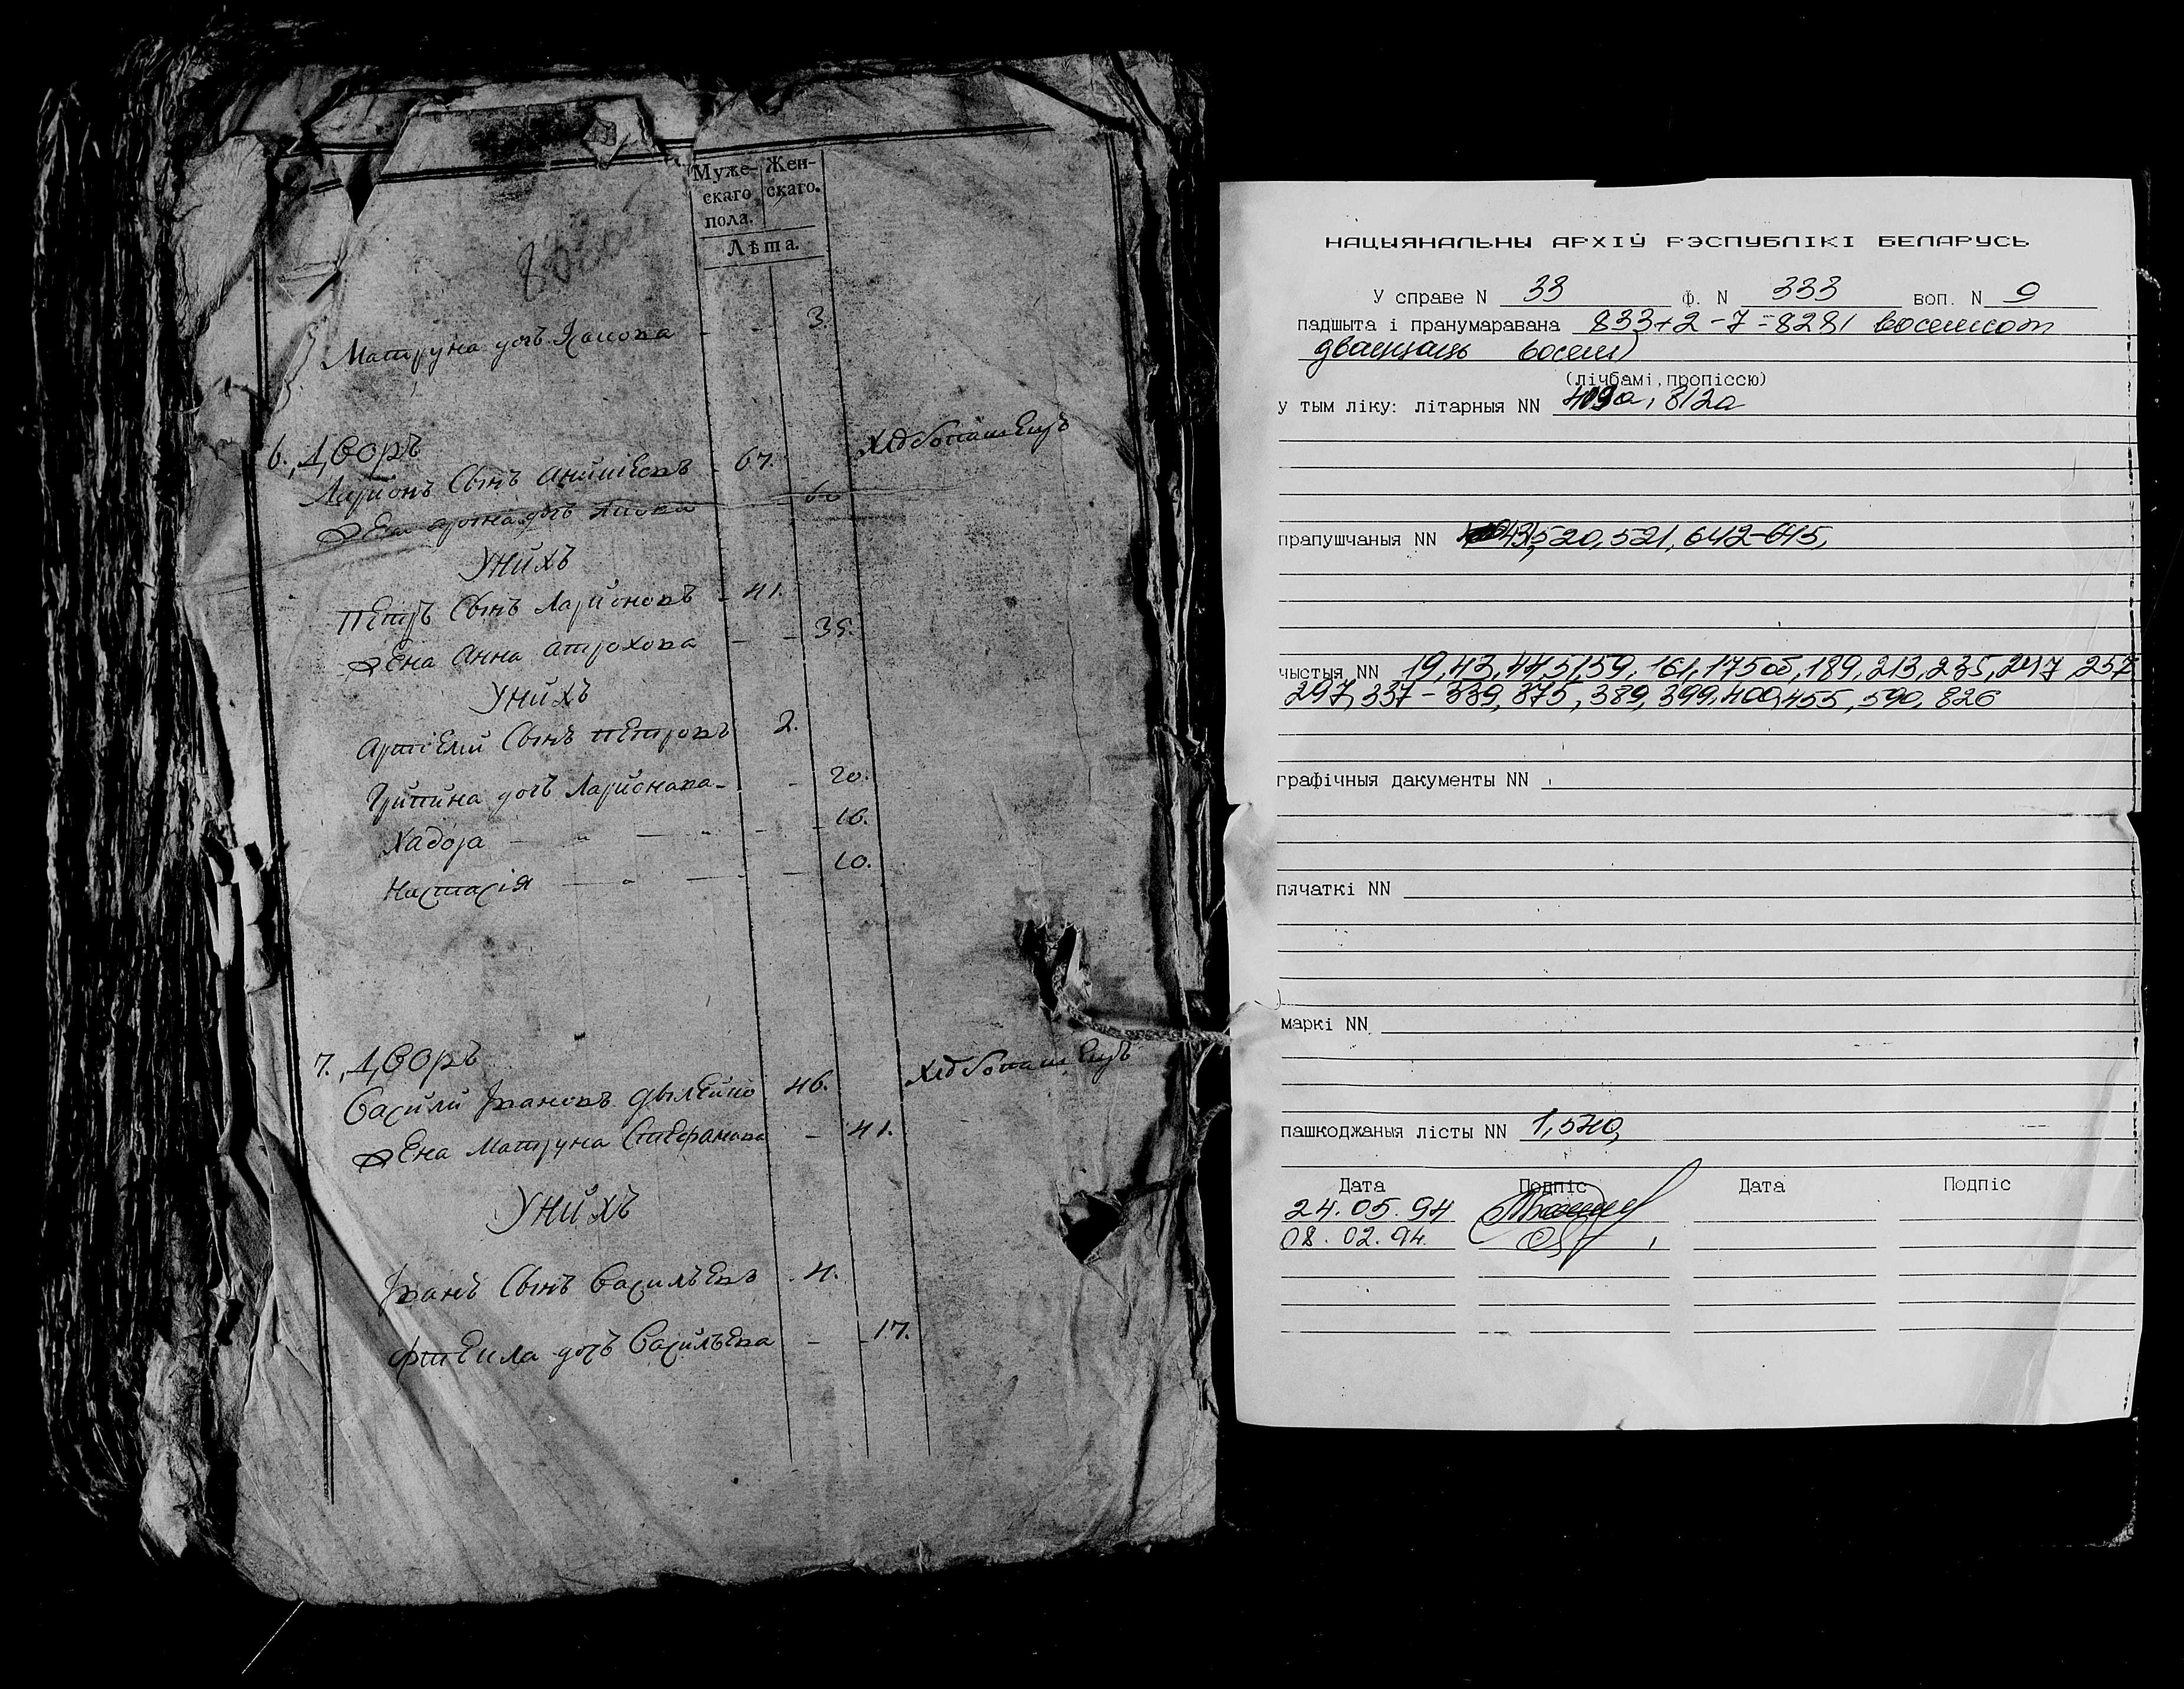 Муже- Жен-
скаго скаго.
пола.
Лѣта.
Матруна дочъ 3.
6. Дворъ
Ларионъ Сынъ 67. Хлѣбопашецъ
Жена дочъ 60
У нихъ
Петръ Сынъ Ларионовъ - 41.
Жена Анна Атрохова - - 35.
У нихъ
Артіемий Сынъ Петровъ 2.
Грипина дочъ Ларионава - - 20.
Хадора — „ — „ - - 16.
Настасія — „ — - 10.
7. Дворъ
Василий Ивановъ 46. Хлѣбопашецъ
Жена Матруна Стефанова - 41.
У нихъ
Иванъ Сынъ Васильевъ . 4.
дочъ Васильева - - 17.
НАЦЫЯНАЛЬНЫ АРХІЎ РЭСПУБЛІКІ БЕЛАРУСЬ
У справе N 33 Ф. N 333 воп. N 9
падшыта і пранумаравана 833+2-7=828/ восемсот
дваццаць восем)
(лічбамі, пропіссю)
у тым ліку: літарныя NN 409а, 812а
прапушчаныя NN 431, 520, 521, 642-645,
чыстыя NN 19, 43, 44, 51, 59, 161, 175об, 189, 213, 235, 247, 257
297, 337-339, 375, 389, 399, 400, 455, 590, 826
графічныя дакументы NN
пячаткі NN
маркі NN
пашкоджаныя лісты NN 1, 540,
Дата Подпіс Дата Подпіс
24.05.94
08.02.94.